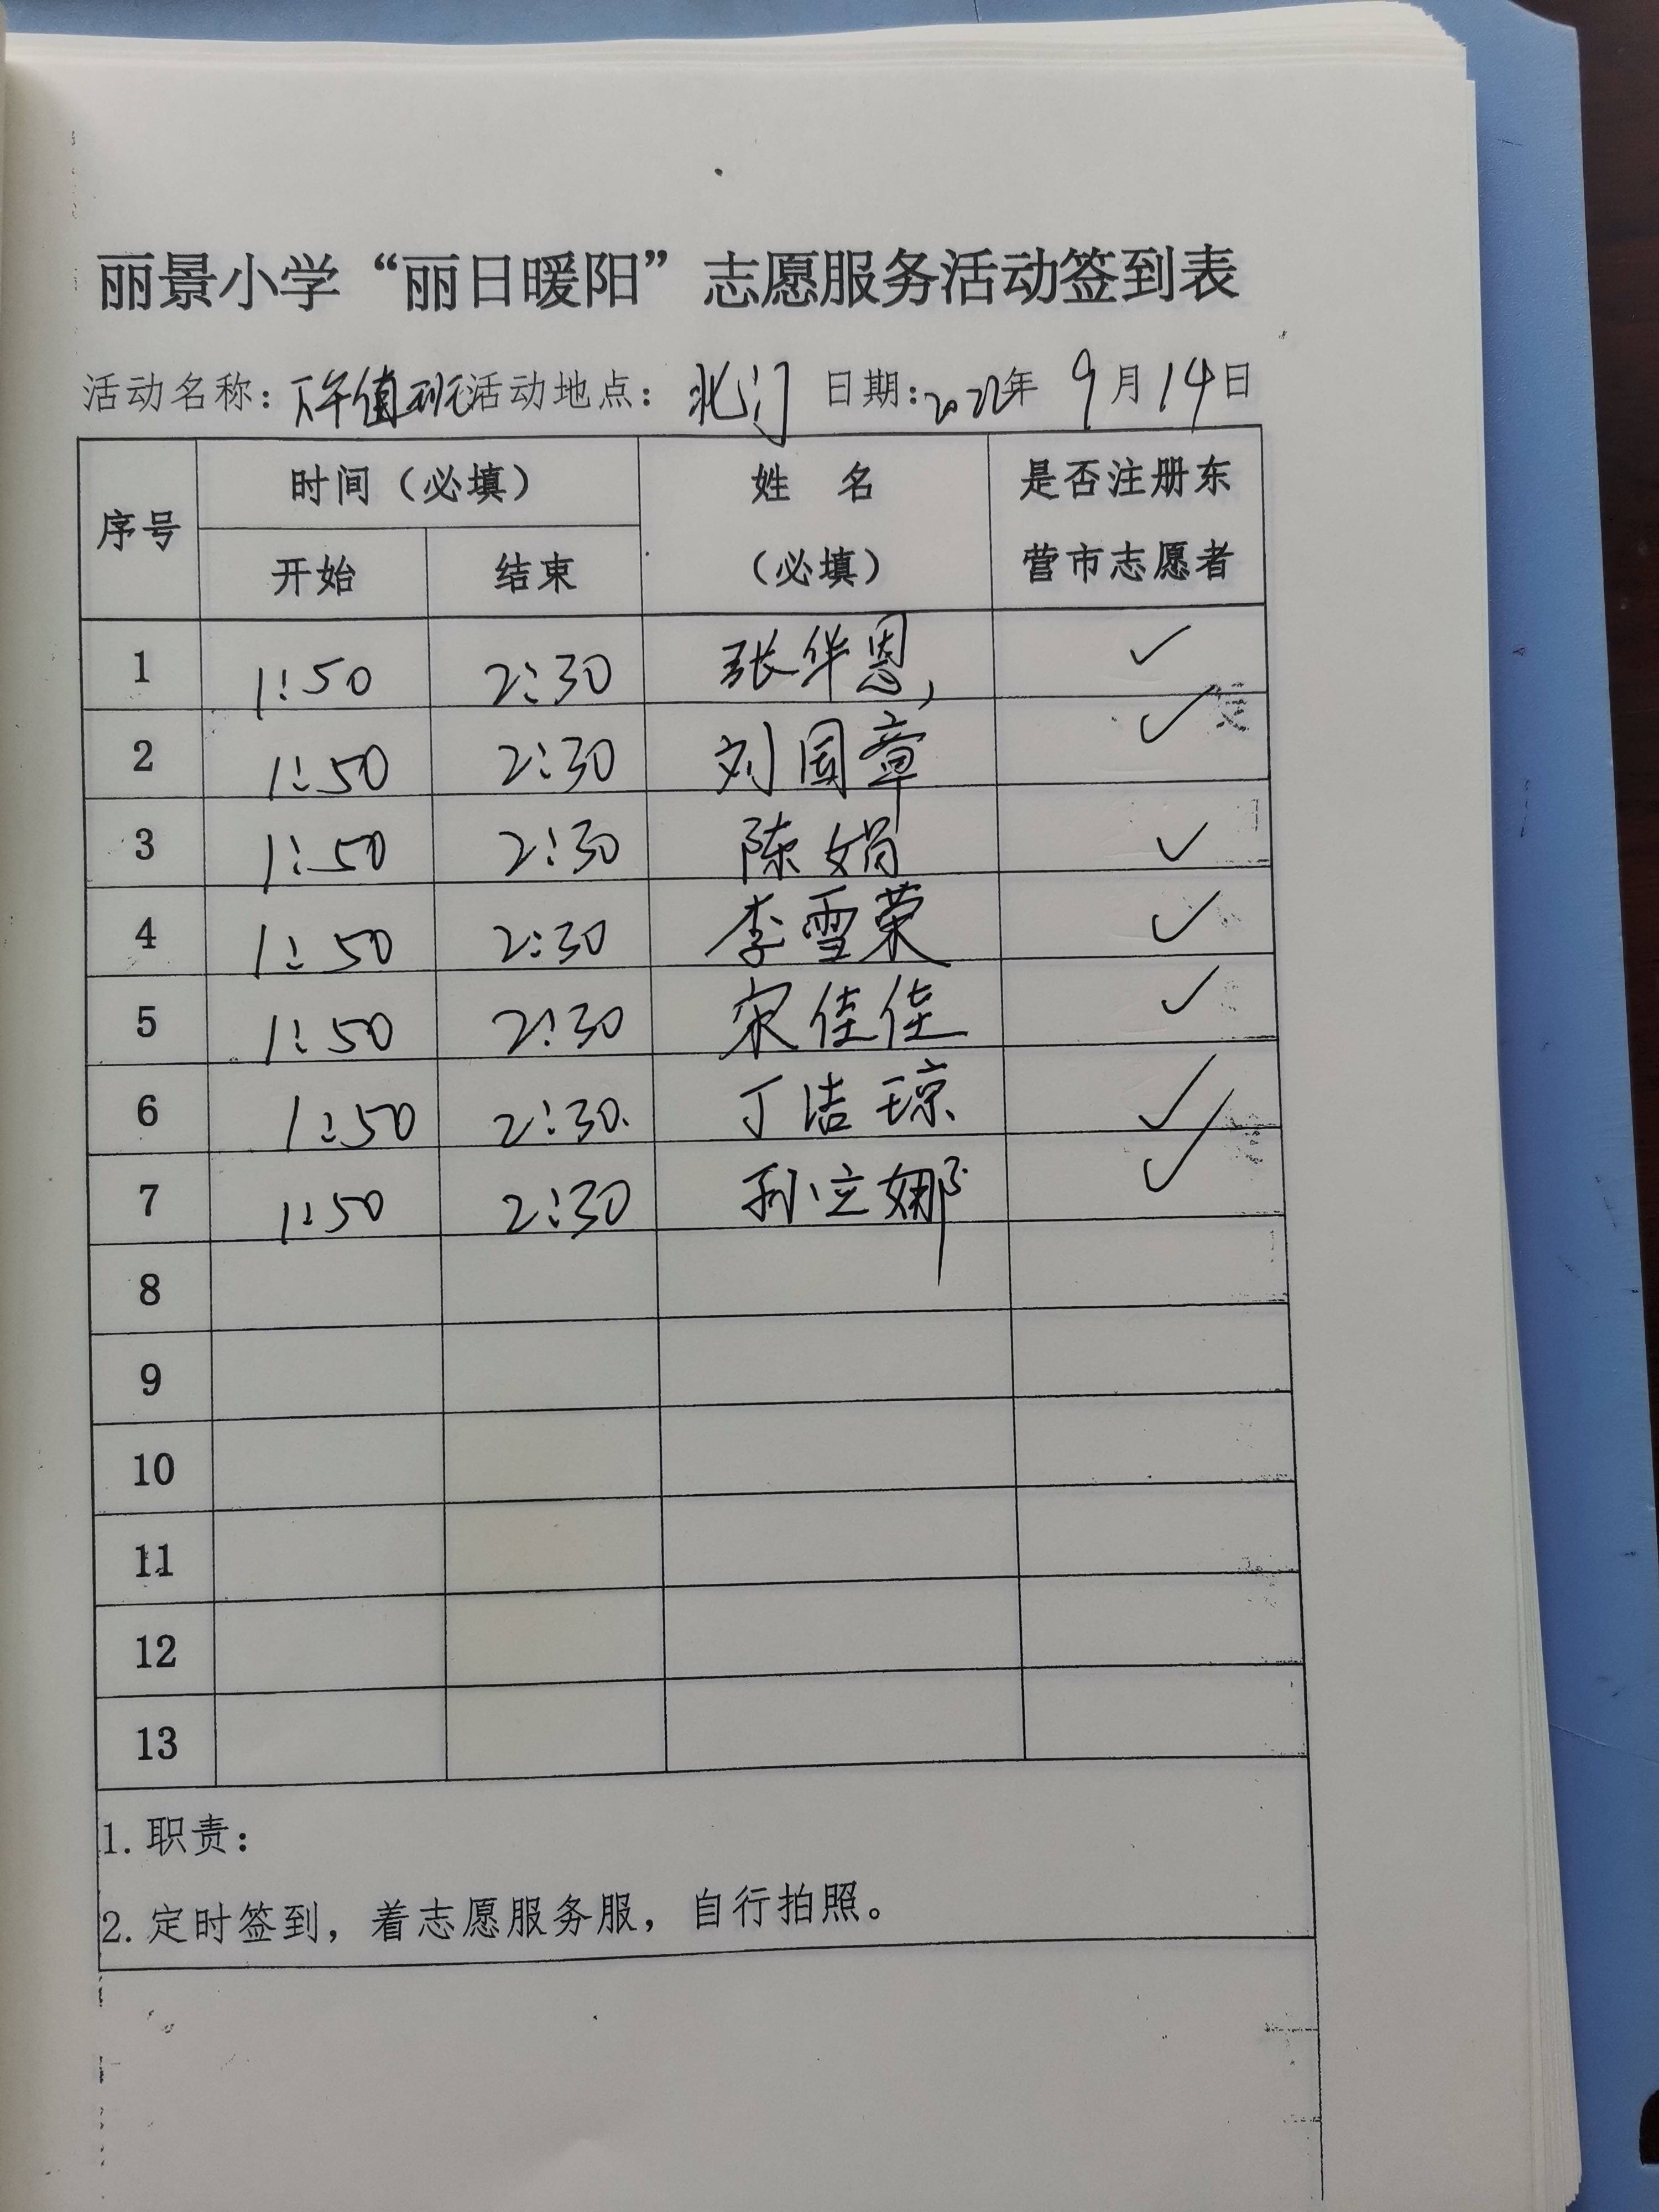 丽景小学“丽日暖阳”志愿服务活动签到表
活动名称：下午值班 活动地点：北门 日期：2022年 9月14日
序号 时间（必填） 姓 名（必填） 是否注册东营市志愿者
开始 结束
1 1:50 2:30 张华恩 ✓
2 1:50 2:30 刘国章 ✓
3 1:50 2:30 陈娟 ✓
4 1:50 2:30 李雪荣 ✓
5 1:50 2:30 宋佳佳 ✓
6 1:50 2:30 丁洁琼 ✓
7 1:50 2:30 孙立娜 ✓
8
9
10
11
12
13
1. 职责：
2. 定时签到，着志愿服务服，自行拍照。